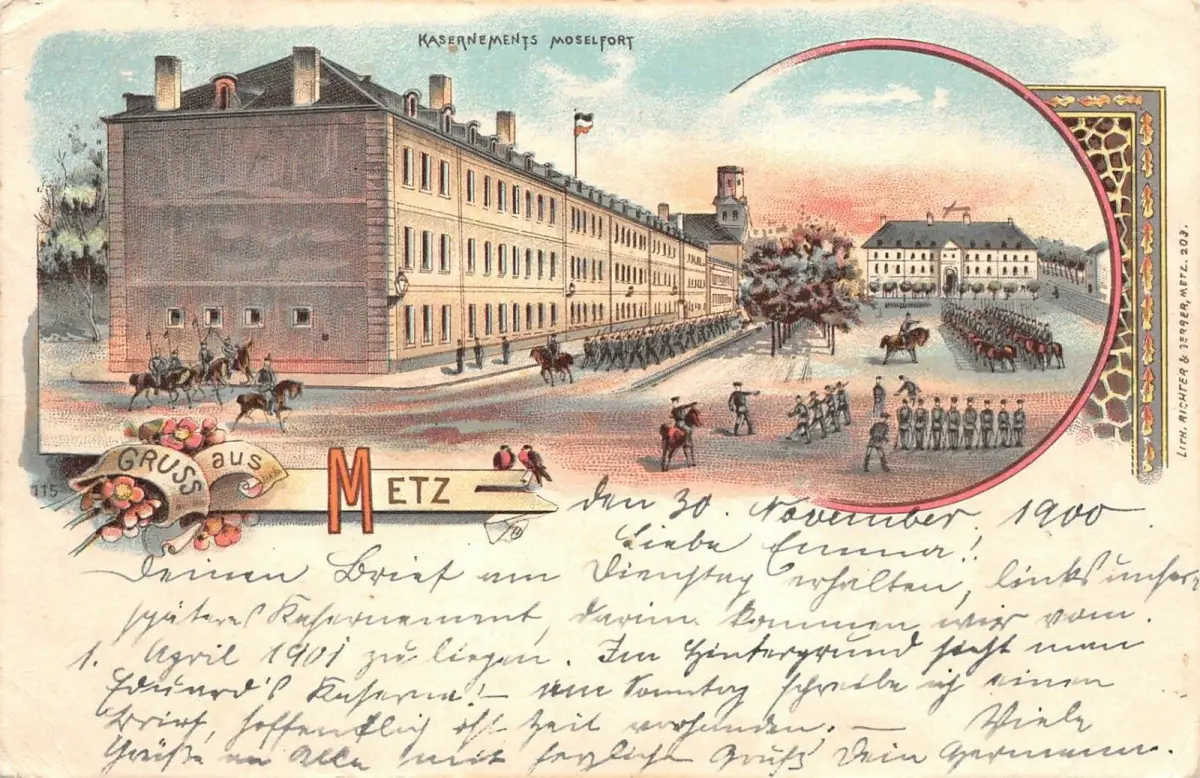 KASERNEMENTS MOSELFORT
GRUSS aus
METZ
115
LITH. RICHTER & BERGER, METZ. 203.
den 30. November 1900
Liebe Emma!
Deinen Brief am Dienstag erhalten, links unser
späteres Kasernement, darin kommen wir vom
1. April 1901 zu liegen. Im Hintergrund sieht man
Eduard's Kaserne! – Am Sonntag schreibe ich einen
Brief, hoffentlich ist Zeit vorhanden. – Viele
Grüße an Alle mit herzliche Gruß Dein Hermann.